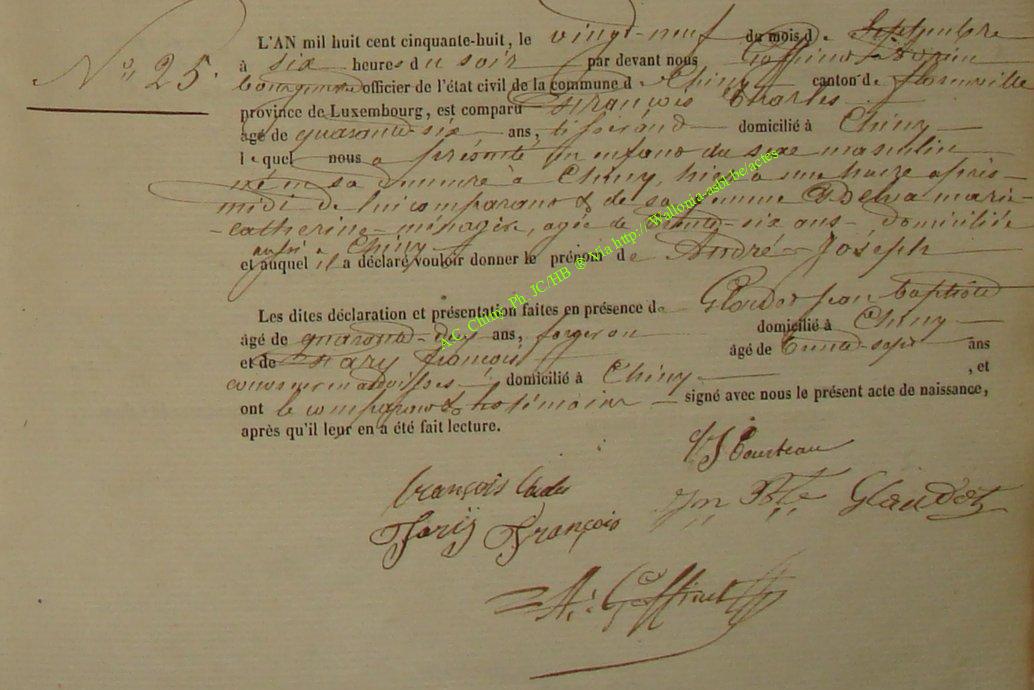 N° 25.
L'AN mil huit cent cinquante-huit, le vingt-neuf du mois de Septembre
à six heures du soir par devant nous
officier de l'état civil de la commune de Chiny canton de florenville
province de Luxembourg, est comparu François Charles
âgé de quarante-six ans, tisserand domicilié à Chiny
lequel nous a présenté un enfant du sexe masculin
né en sa demeure à Chiny, hier à onze après-
midi de lui comparant & de sa femme marie-
catherine ménagère, agée de trente-six ans domiciliée
aussi à Chiny
et auquel il a déclaré vouloir donner le prénom de André Joséph
Les dites déclaration et présentation faites en présence de Glaudot jean baptiste
âgé de quarante- ans, forgeron domicilié à Chiny
et de françois âgé de trente-sept ans
domicilié à Chiny , et
ont le comparant & les témoins signé avec nous le présent acte de naissance,
après qu'il leur en a été fait lecture.
françois
François
Jn Bte Glaudot
A. Goffinet
A.C. Chiny Ph JC/HB @ Via http://Wallonia-asbl-be/actes